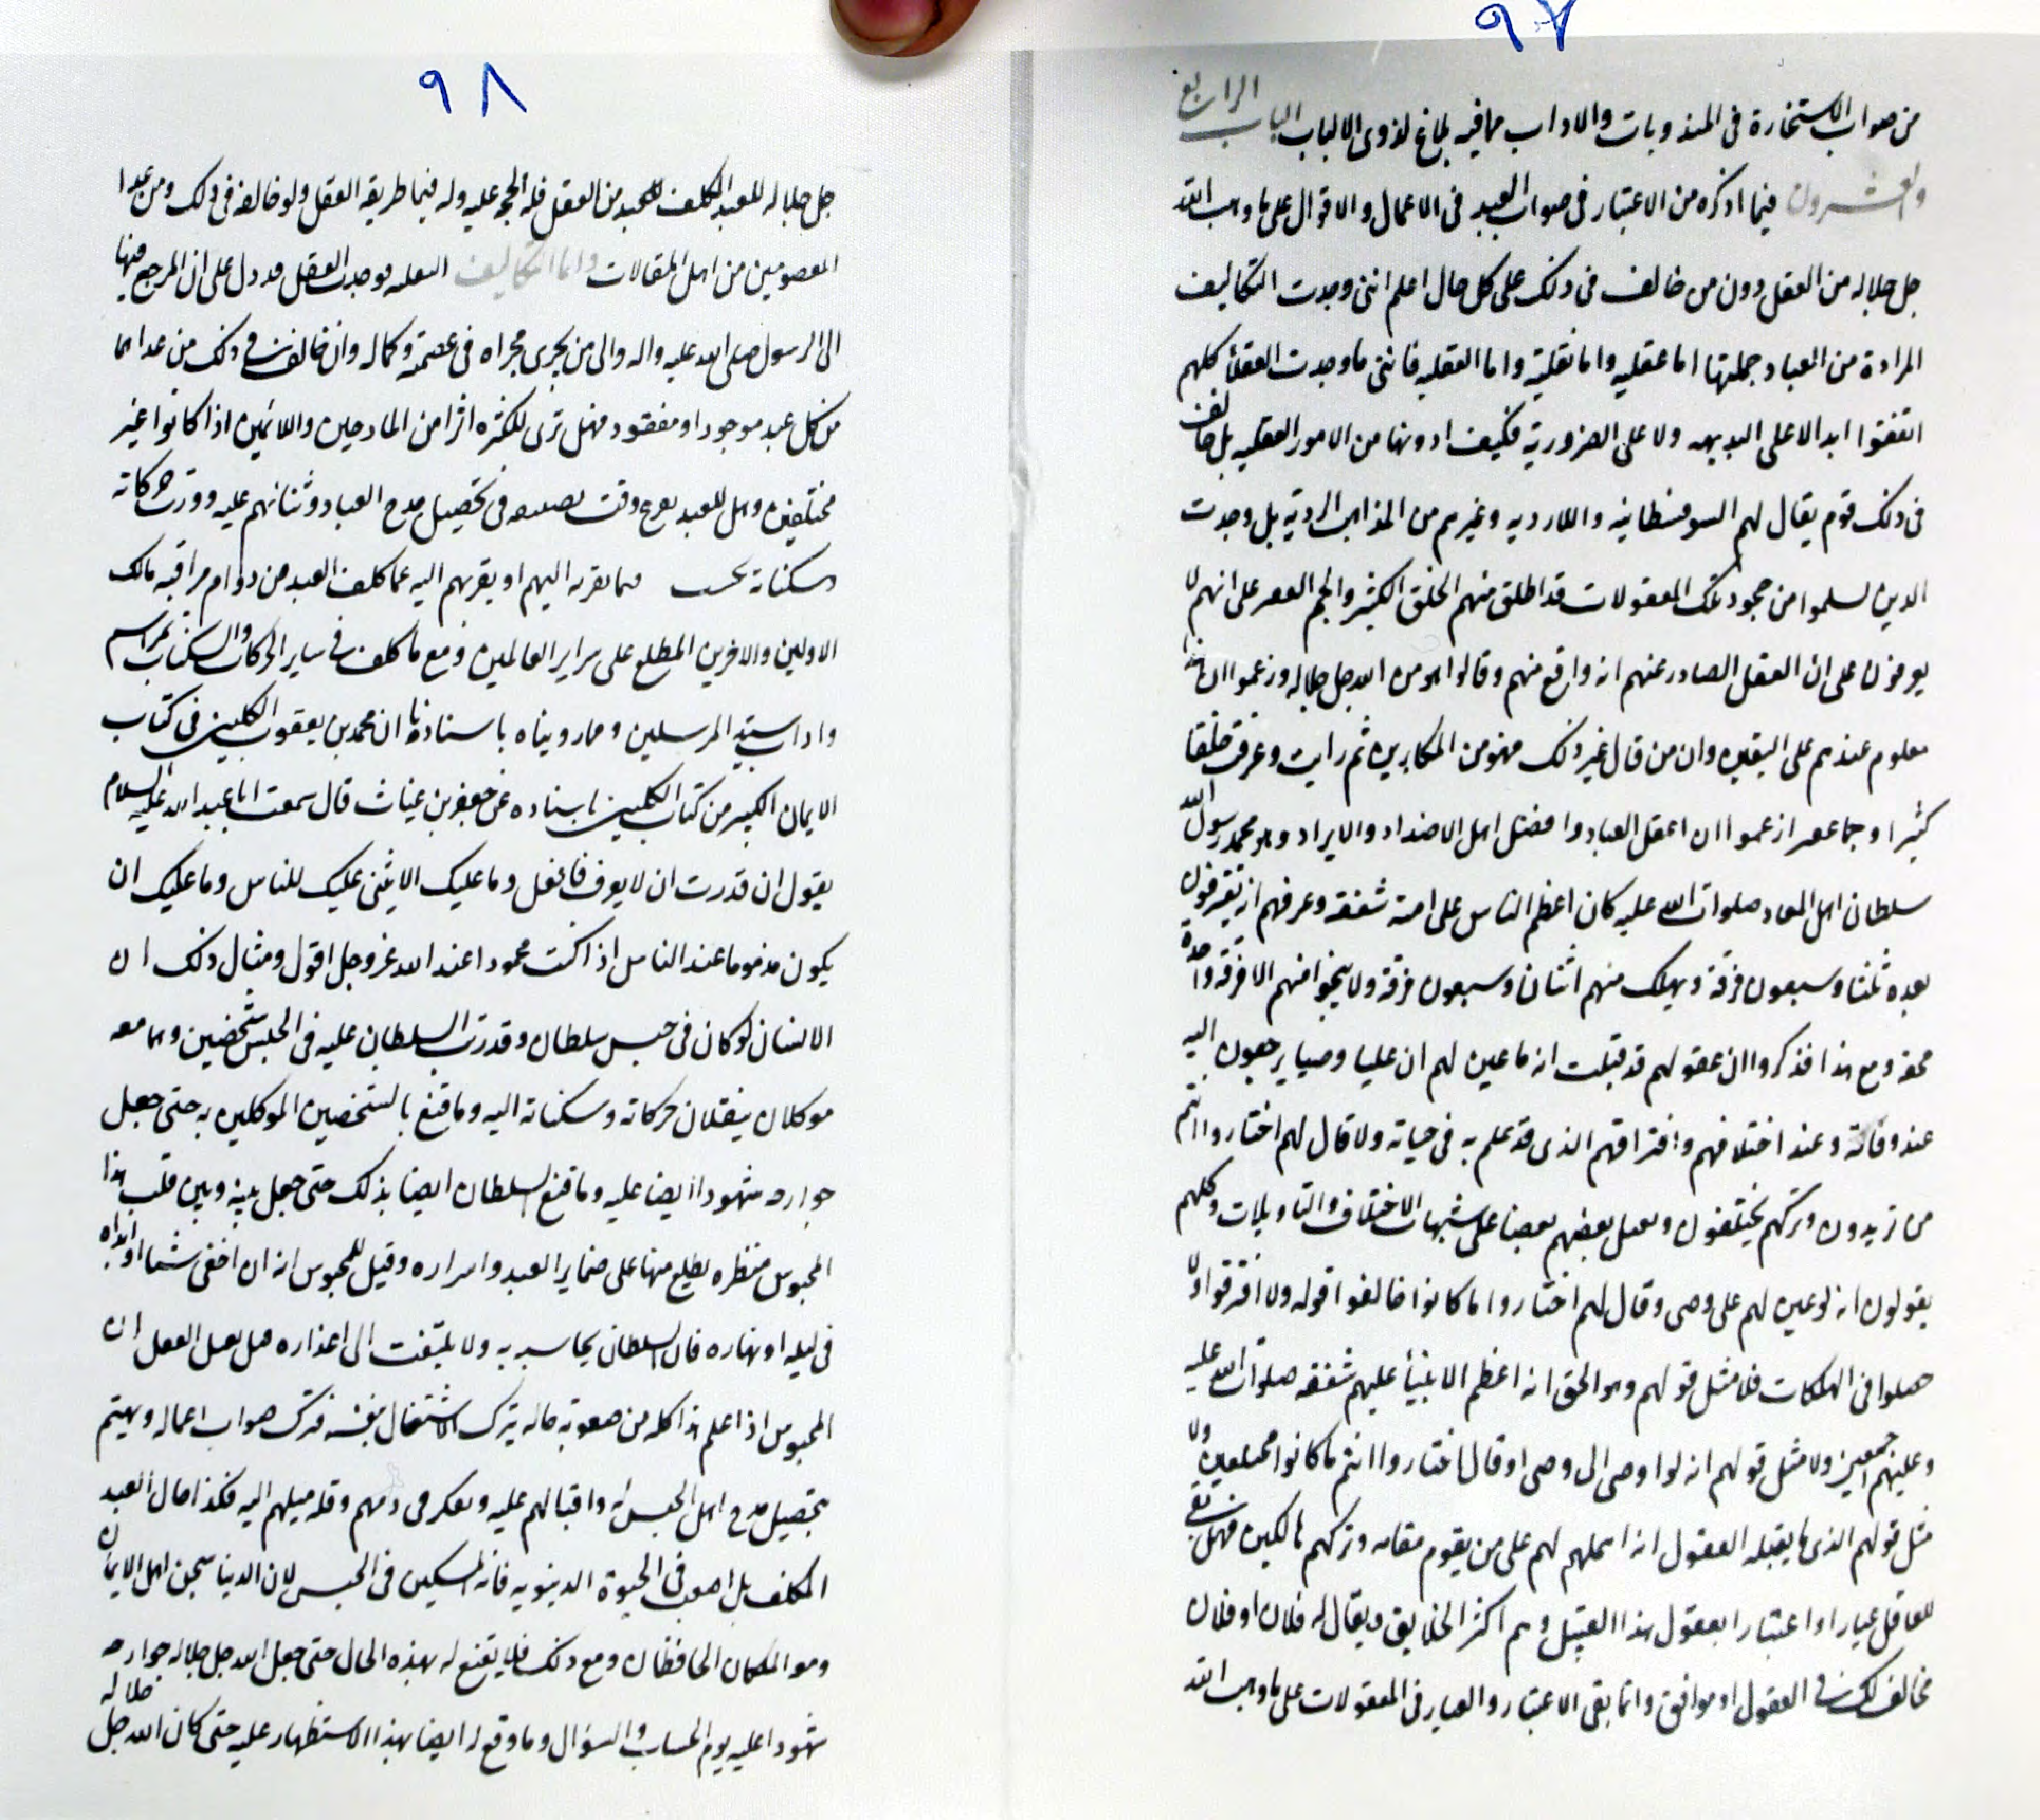 ٩٧
من صواب الاستخارة فى المندوبات والاداب مما فيه بلاغ لذوى الالباب الباب الرابع
والعشرون فيما اذكره من الاعتبار فى صواب العبد فى الاعمال والاقوال على ما وهب الله
جل جلاله من العقل دون من خالف فى ذلك على كل حال اعلم اننى وجدت التكاليف
المرادة من العباد جملتها اما عقليه واما نقلية واما العقليه فاننى ما وجدت العقلأ كلهم
اتفقوا ابدا لا على البديهه ولا على الضرورية فكيف ادونها من الامور العقليه بل خالف
فى ذلك قوم يقال لهم السوفسطائيه واللاردیه وغيرهم من المذاهب الردية بل وجدت
الدين سلموا من جحود تلك المعقولات قد اطلق منهم الخلق الكثير والجم الغفير على انهم لا
يعرفون على ان العقل الصادر عنهم انه واقع منهم وقالوا هو من الله جل جلاله وزعموا ان هذا
معلوم عندهم على اليقين وان من قال غير ذلك فهو من المكابرين ثم رايت وعرفت خلقا
كثيرا وجما غفيرا زعموا ان اعقل العباد وافضل اهل الاصدار والايراد وهو محمد رسول الله
سلطان اهل المعاد صلوات الله عليه كان اعظم الناس على امته شفقه وعرفهم انهم يفترقون
بعده ثلثا وسبعون فرقة ويهلك منهم اثنان وسبعون فرقة ولا ينجوا منهم الا فرقة واحدة
محقه ومع هذا فذكروا ان عقولهم قد قبلت انه ما عين لهم ان عليا وصيا يرجعون اليه
عند وفاته وعند اختلافهم وافتراقهم الذى قد علم به فى حياته ولا قال لهم اختاروا انتم
من تريدون وتركهم يختلفون ويقتل بعضهم بعضا على شبهات الاختلاف والتاويلات وكلهم
يقولون انه لو عين لهم على وصى وقال لهم اختاروا ما كانوا خالفوا قوله ولا افترقوا ولا
حصلوا فى الهلكات فلا مثل قولهم وهو الحق انه اعظم الانبيأ عليهم شفقه صلوات الله عليه
وعليهم اجمعين ولا مثل قولهم انه لو اوصى الى وصى او قال اختاروا انتم ما كانوا مختلفين ولا
مثل قولهم الذى ما يقبله العقول انه اهملهم لهم على من يقوم مقامه وتركهم هالكين فهل بقى
للعاقل عيارا واعتبارا بعقول هذا القبيل وهم اكثر الخلايق ويقال له فلان او فلان
مخالف لك فى العقول او موافق وانما بقى الاعتبار والعيار فى المعقولات على ما وهب الله
٩٨
جل جلاله للعبد المكلف للعبد من العقل فله الحجه عليه وله فيما طريقه العقل ولو خالفه فى ذلك ومن عدا
المعصومين من اهل المقالات واما التكاليف النقليه فوجدت العقل قد دل على ان المرجع فيها
الى الرسول صلى الله عليه واله والى من يجرى مجراه فى عصمته وكماله وان خالف فى ذلك من عداهما
من كل عبد موجود او مفقود فهل ترى للكثره اثرا من المادحين واللائمين اذا كانوا غير
مختلفين وهل للعبد وقت يضيعه فى تحصيل مدح العباد وثنائهم عليه وورت حركاته
وسكناته بحسب فيما يقربه اليهم او يقربهم اليه عما كلف العبد من دوام مراقبه مالك
الاولين والاخرين المطلع على سراير العالمين ومع ما كلف فى ساير الحركات والسكنات بمراسم
واداب سيد المرسلين ومما رويناه باسنادنا ان محمد بن يعقوب الكلينى فى كتاب
الايمان الكبير من كتاب الكلينى باسناده عن جعفر بن غياث قال سمعت ابا عبد الله عليه السلام
يقول ان قدرت ان لا يعرف فافعل وما عليك الا يثنى عليك للناس وما عليك ان
يكون مذموما عند الناس اذا كنت محمودا عند الله عز وجل اقول ومثال ذلك ان
الانسان لو كان فى حبس سلطان وقدرت السلطان عليه فى الحبس شخصين وهما معه
موكلان ينقلان حركاته وسكناته اليه وما قنع بالشخصين الموكلين به حتى جعل
جوارحه شهودا ايضا عليه وما قنع السلطان ايضا بذلك حتى جعل بينه وبين قلب هذا
المحبوس منظره يطلع منها على ضماير العبد واسراره وقيل للمحبوس انه ان اخفى شيئا او ابداه
فى ليله او نهاره فان السلطان يحاسبه به ولا يلتفت الى اعذاره فهل يقبل العقل ان
المحبوس اذا علم هذا كله من صعوبة حاله يترك الاشتغال بنفسه فترك صواب اعماله ويهتم
بتحصيل مدح اهل الحبس له واقبالهم عليه ويفكر فى ذمهم وقله ميلهم اليه فكذا حال العبد
المكلف بل اصعب فى الحيوة الدنيويه فانه المسكين فى الحبس لان الدنيا سجن اهل الايمان
ومعه الملكان الحافظان ومع ذلك فلا يقنع له بهذه الحال حتى جعل الله جل جلاله جوارحه
شهودا عليه يوم الحساب والسؤال وما وقع له ايضا بهذا الاستظهار عليه حتى كان الله جل جلاله